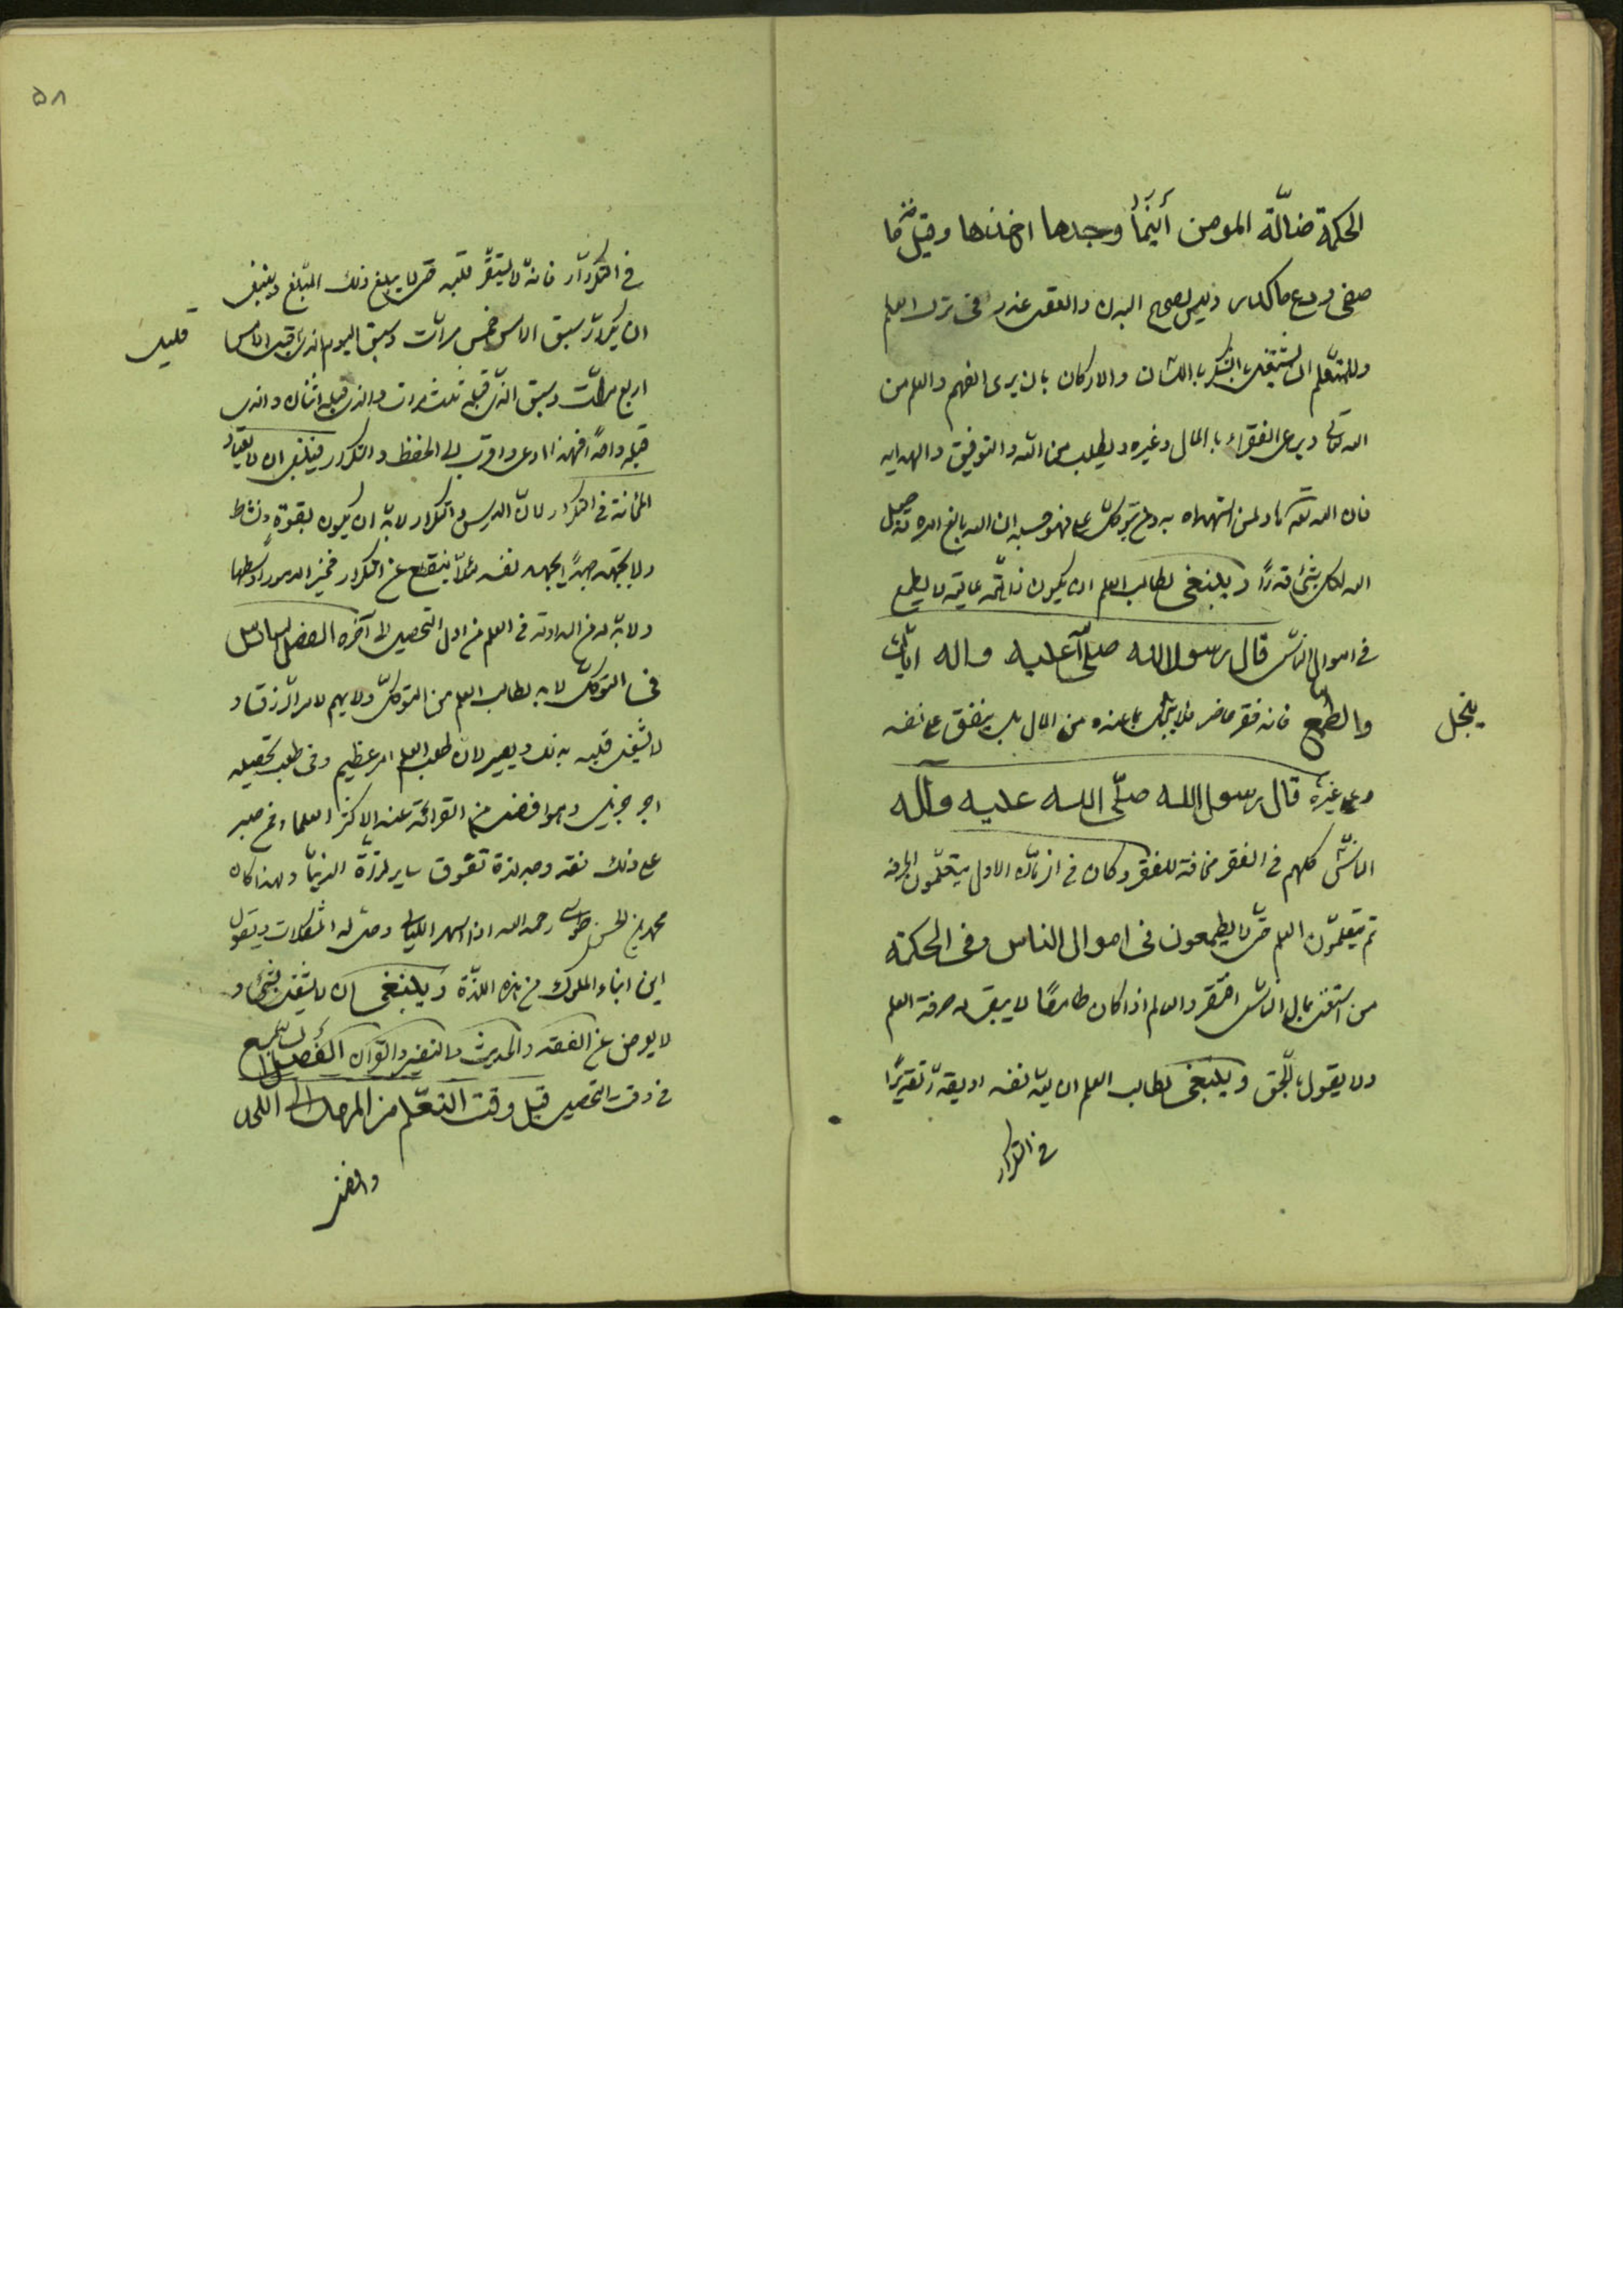 الحكمة ضالّة المومن أينما وجدها اخذها وقيل خذ ما
صفى ودع ماكدر وليس لصحيح البدن والعقل عذر فى ترك العلم
وللمتعلم ان يشتغل بالشكر باللسان والاركان بان يرى الفهم والعلم من
الله تعالى ويراعى الفقراء بالمال وغيره ويطلب من الله التوفيق والهدايه
فان الله تعالى هاد لمن استهداه ومن يتوكل على الله فهو حسبه ان الله بالغ امره قد جعل
الله لكل شئ قدرًا وينبغى لطالب العلم ان يكون ذا همّة عالية لا يطمع
فى اموال الناس قال رسول الله صلى الله عليه واله اياك
والطمع فانه فقر حاضر فلا يبخل بما عنده من المال بل ينفق على نفسه
يبخل
وعلى غيره قال رسول الله صلّى الله عليه وآله
الناس كلهم فى الفقر مخافة للفقر وكان فى الزمان الاول يتعلّمون الحرفة
ثم يتعلّمون العلم حتى لا يطمعون فى اموال الناس وفى الحكمة
من استغنى بمال الناس افتقر والعالم اذا كان طامعًا لا يبقى له حرمة العلم
ولا يقول بالحق وينبغى لطالب العلم ان يعدّ نفسه ويقدّر تقديرًا
فى التكرار
۵۸
فى التكرار فانه لا يستقرّ قلبه حتى لا يبلغ ذلك المبلغ وينبغى
ان يكرّر سبق الامس خمس مرات وسبق اليوم الذى قبل الامس
قليل
اربع مرات وسبق الذى قبله ثلث مرات والذى قبله اثنان والذى
قبله واحدًا فهذا ادعى واقرب الى الحفظ والتكرار فينبغى ان لا يعتاد
المخافتة فى التكرار لان الدرس والتكرار لابدّ ان يكون بقوة ونشاط
ولا يجهر جهرًا يجهد نفسه لئلا ينقطع عن التكرار فخير الامور اوسطها
ولابدّ له من المداومة فى العلم من اول التحصيل الى آخره الفصل السادس
فى التوكل لابد لطالب العلم من التوكل ولا يهم لامر الرزق و
لا يشغل قلبه بذلك ويصبر لان طلب العلم امر عظيم وفى طلب تحصيله
اجر جزيل وهو افضل من القرائة عند اكثر العلماء فمن صبر
على ذلك فقد وجد لذة تفوق ساير لذّة الدنيا ولهذا كان
محمد بن الحسن طوسى رحمه الله اذا سهر الليالى وحل له المشكلات ويقول
اين ابناء الملوك من هذه اللذّة وينبغى ان لا يشتغل بشئ و
لا يعرض عن الفقه والحديث والتفسير والقرآن الفصل السابع
فى وقت التحصيل قيل وقت التعلّم من المهد الى اللحد
وافضل